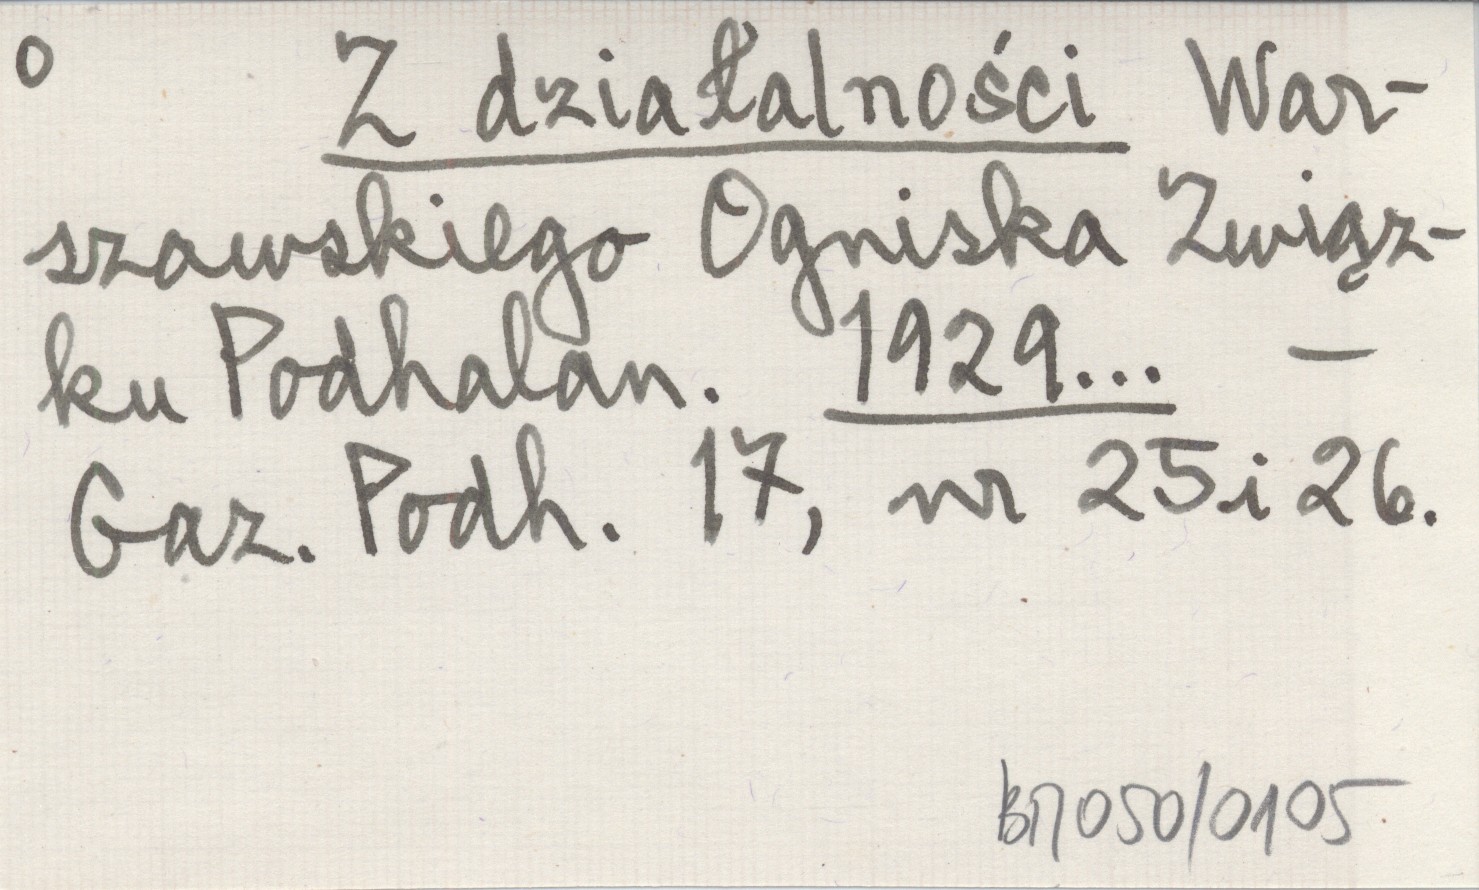 o Z działalności War-
szawskiego Ogniska Związ-
ku Podhalan. 1929... —
Gaz. Podh. 17, nr 25 i 26.
BP050/0105